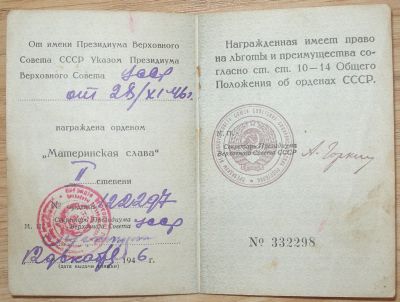 От имени Президиума Верховного
Совета СССР Указом Президиума
Верховного Совета УССР
от 28/XI-46г.
награждена орденом
„Материнская слава"
II степени
№ ордена 122297
М. П. Секретарь Президиума
Верховного Совета УССР
12 декабря 1946 г.
(дата выдачи книжки)
Награжденная имеет право
на льготы и преимущества со-
гласно ст. ст. 10—14 Общего
Положения об орденах СССР.
М. П.
Секретарь Президиума
Верховного Совета СССР
А. Горкин
№ 332298